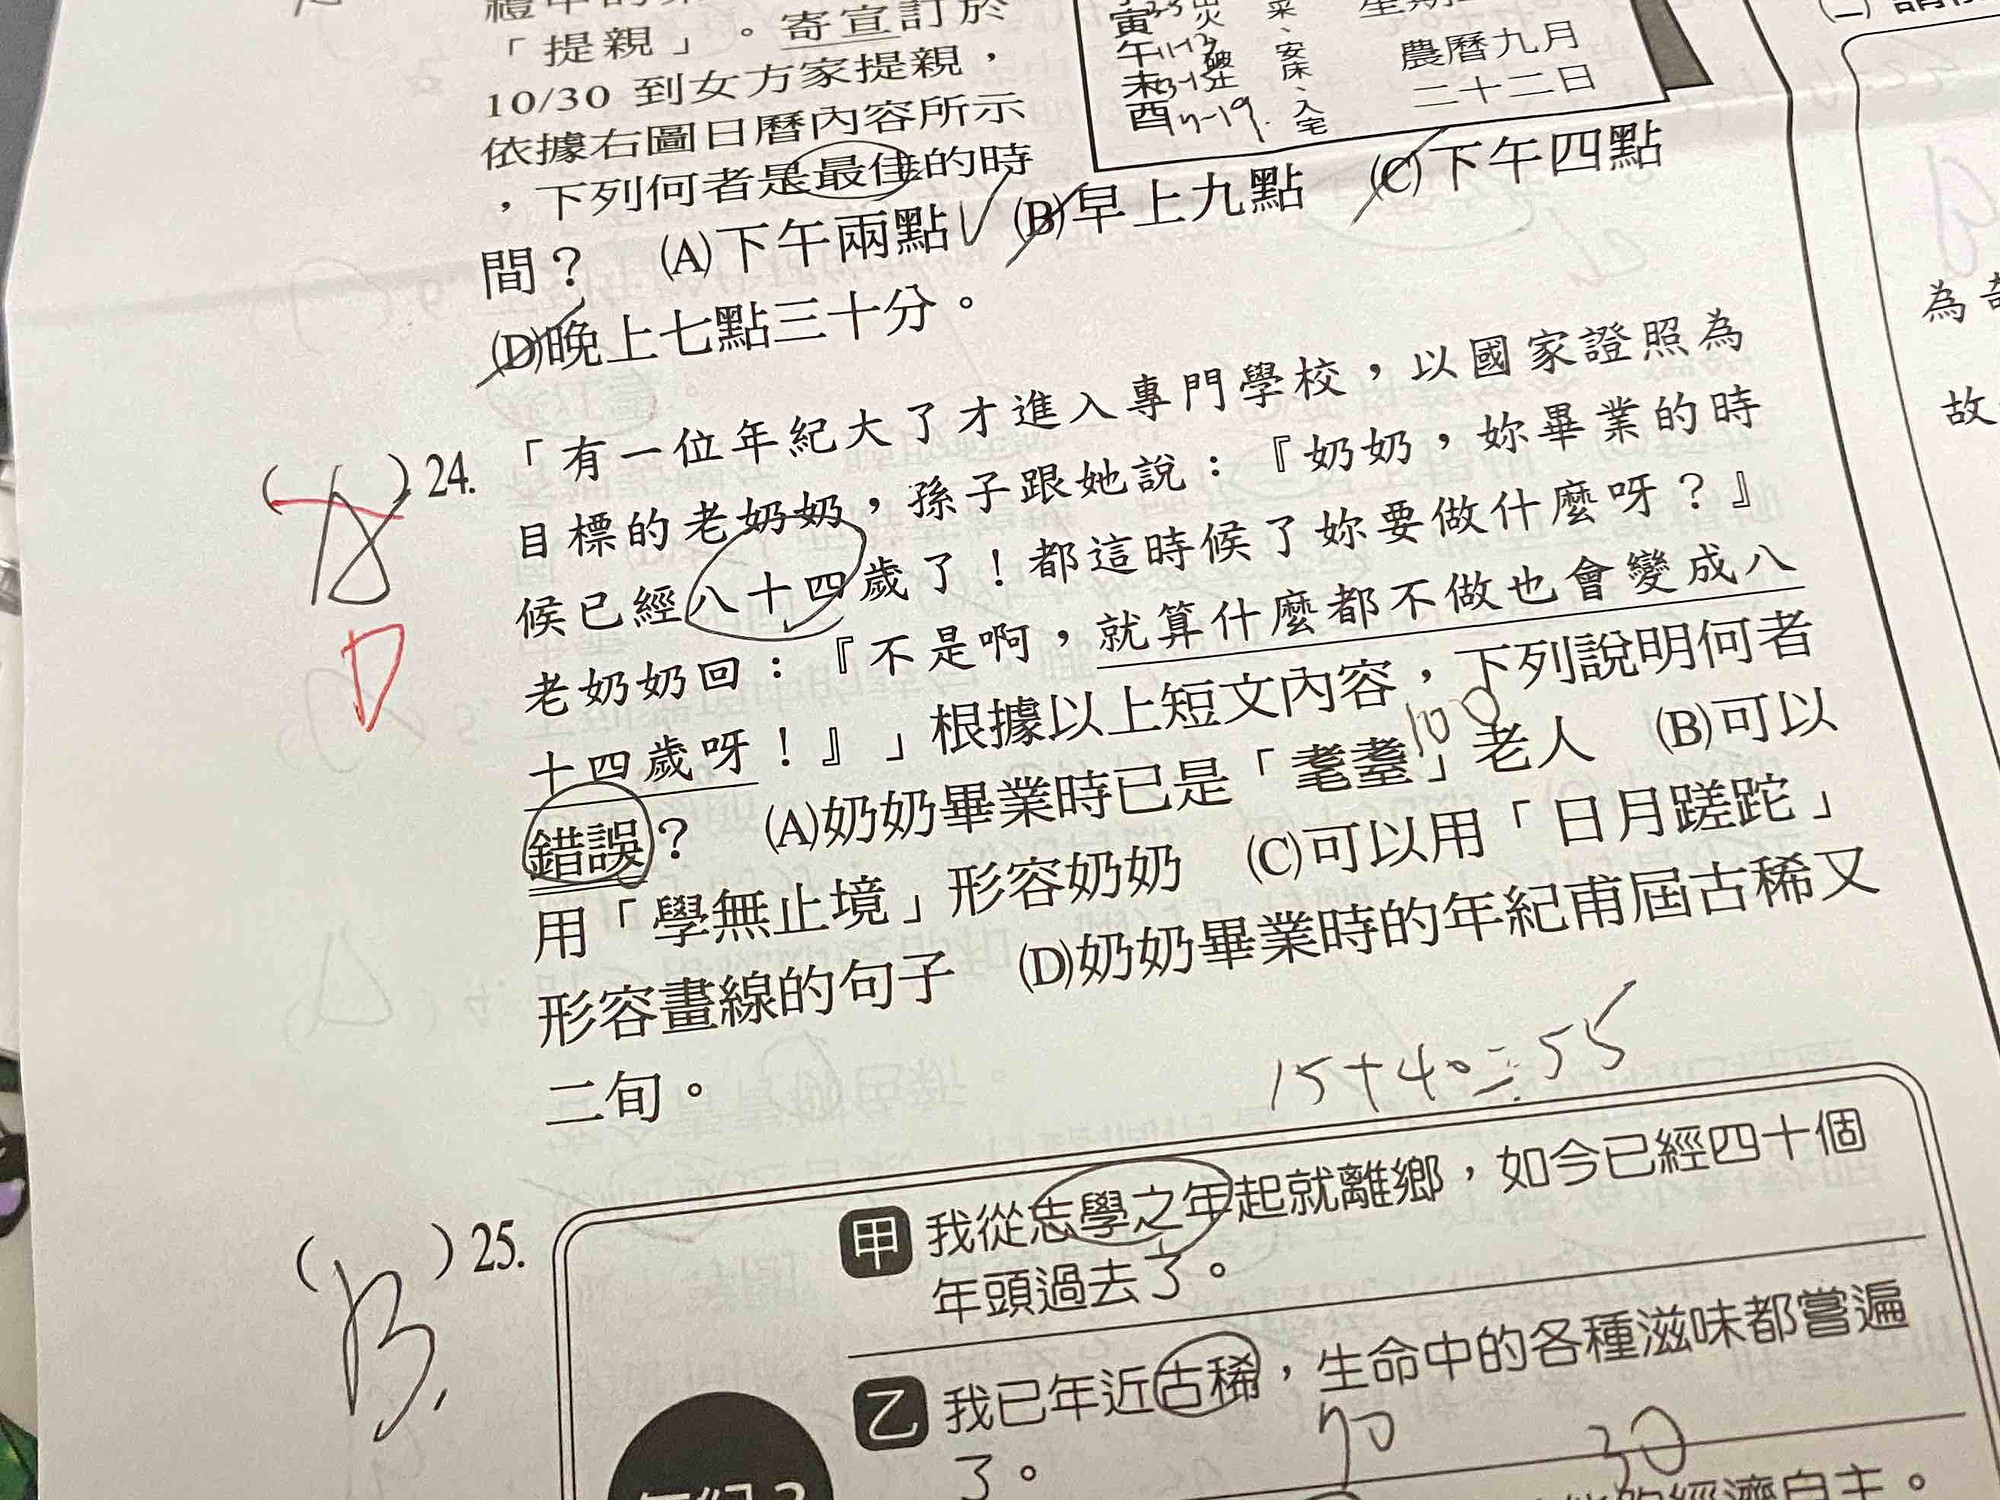 「提親」。寄宣訂於
10/30 到女方家提親，
依據右圖日曆內容所示
，下列何者是最佳的時
間？ (A)下午兩點 (B)早上九點 (C)下午四點
(D)晚上七點三十分。
寅
午 11-13
未 13-15
酉 17-19
出火
破土
安床、入宅
農曆九月
二十二日
( A ) 24.
D
「有一位年紀大了才進入專門學校，以國家證照為
目標的老奶奶，孫子跟她說：『奶奶，妳畢業的時
候已經八十四歲了！都這時候了妳要做什麼呀？』
老奶奶回：『不是啊，就算什麼都不做也會變成八
十四歲呀！』」根據以上短文內容，下列說明何者
錯誤？ (A)奶奶畢業時已是「耄耋」老人 (B)可以
100
用「學無止境」形容奶奶 (C)可以用「日月蹉跎」
形容畫線的句子 (D)奶奶畢業時的年紀甫屆古稀又
二旬。
15+40=55
( B ) 25.
甲 我從志學之年起就離鄉，如今已經四十個
年頭過去了。
乙 我已年近古稀，生命中的各種滋味都嘗遍
了。
70
30
的經濟自主。
為
故